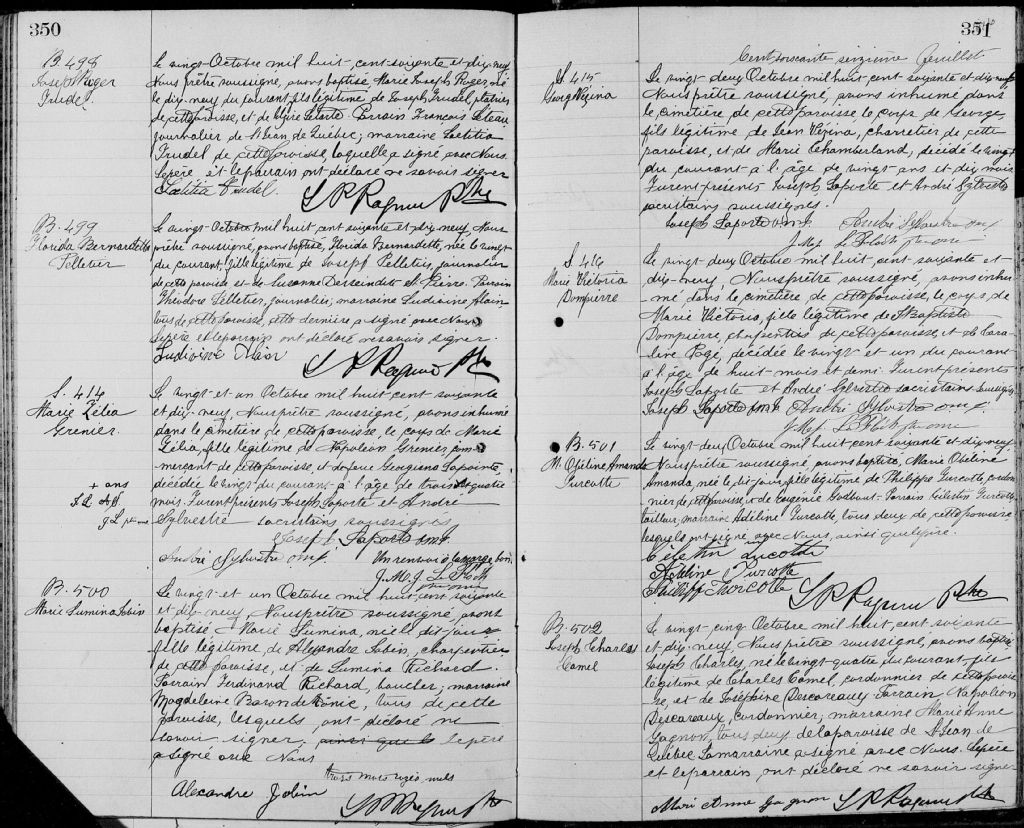 350
B. 498
Joseph Roger
Trudel.
Le vingt Octobre mil huit-cent-soixante et dix-neuf
Nous prêtre soussigné, avons baptisé, Marie Joseph Roger, né
le dix-neuf du courant, fils légitime de Joseph Trudel, plâtrier
de cette paroisse, et de Marie Letarte Parrain François
journalier de St Jean de Québec; marraine Laetitia
Trudel de cette paroisse, laquelle a signé avec Nous.
Le père et le parrain ont déclaré ne savoir signer
Laetitia Trudel. Ptre
B. 499
Florida Bernardette
Pelletier
Le vingt Octobre mil huit cent soixante et dix neuf, Nous
prêtre soussigné, avons baptisé, Florida Bernardette, née le vingt
du courant, fille légitime de Joseph Pelletier, journalier
de cette paroisse et de Suzanne Dessaindite St Pierre. Parrain
Théodore Pelletier, journalier; marraine Ludivine Alain,
tous de cette paroisse, cette dernière a signé avec Nous
Le père et le parrain ont déclaré ne savoir signer.
Ludivine Alain
Ptre
S. 414
Marie Zélia
Grenier.
Le vingt et un Octobre mil huit cent soixante
et dix-neuf, Nous prêtre soussigné, avons inhumé
dans le cimetière de cette paroisse, le corps de Marie
Zélia, fille légitime de Napoléon Grenier, com-
merçant de cette paroisse et de feue Georgiana Lapointe,
décédée le vingt du courant à l'âge de trois et quatre
mois. Furent présents Joseph Laporte et André
Sylvestre sacristains soussignés
+ ans
J. L. A. S.
Joseph Laporte
André Sylvestre Un renvoi à la marge bon.
B. 500
Marie Lumina Jobin
Le vingt et un Octobre mil huit cent soixante
et dix-neuf Nous prêtre soussigné avons
baptisé Marie Lumina, née le dit-jour
fille légitime de Alexandre Jobin, charpentier
de cette paroisse, et de Lumina Richard.
Parrain Ferdinand Richard, boucher; marraine
Magdeleine Baron de Tonic, tous de cette
paroisse, lesquels ont déclaré ne
savoir signer, ainsi que le Le père
a signé avec Nous
trois mots rayés nuls
Alexandre Jobin
Ptre
351
Cent soixante seizième Feuillet
S. 415
George Vézina
Le vingt deux Octobre mil huit cent soixante et dix-neuf
Nous prêtre soussigné, avons inhumé dans
le cimetière de cette paroisse le corps de George,
fils légitime de Jean Vézina, charretier de cette
paroisse, et de Marie Chamberland; décédé le vingt
du courant à l'âge de vingt ans et dix mois
Furent présents Joseph Laporte et André Sylvestre
sacristains soussignés.
Joseph Laporte André Sylvestre
S. 416
Marie Victoria
Dompierre
Le vingt deux Octobre mil huit cent soixante et
dix-neuf, Nous prêtre soussigné, avons inhu-
mé dans le cimetière de cette paroisse, le corps de
Marie Victoria, fille légitime de J Baptiste
Dompierre, charpentier de cette paroisse, et de Caro-
line Pagé, décédée le vingt et un du courant
à l'âge de huit mois et demi. Furent présents
Joseph Laporte et André Sylvestre sacristains soussignés
Joseph Laporte André Sylvestre
B. 501
M. Obéline Amanda
Turcotte
Le vingt deux Octobre mil huit cent soixante et dix-neuf
Nous prêtre soussigné, avons baptisé, Marie Obéline
Amanda, née le dit-jour, fille légitime de Philippe Turcotte, cordon-
nier de cette paroisse et de Eugénie Godbout. Parrain Célestin Turcotte
tailleur, marraine Adéline Turcotte, tous deux de cette paroisse,
lesquels ont signé avec Nous, ainsi que le père.
Célestin Turcotte
Adéline Turcotte
Philippe Turcotte
Ptre
B. 502
Joseph Charles
Hamel
Le vingt cinq Octobre mil huit, cent soixante
et dix neuf, Nous prêtre soussigné, avons baptisé
Joseph Charles, né le vingt quatre du courant fils
légitime de Charles Hamel, cordonnier de cette parois-
se, et de Joséphine Descareaux, Parrain Napoléon
Descareaux, cordonnier, marraine Marie Anne
Gagnon, tous deux de la paroisse de St Jean de
Québec La marraine a signé avec Nous. Le père
et le parrain, ont déclaré ne savoir signer
Marie Anne Gagnon Ptre